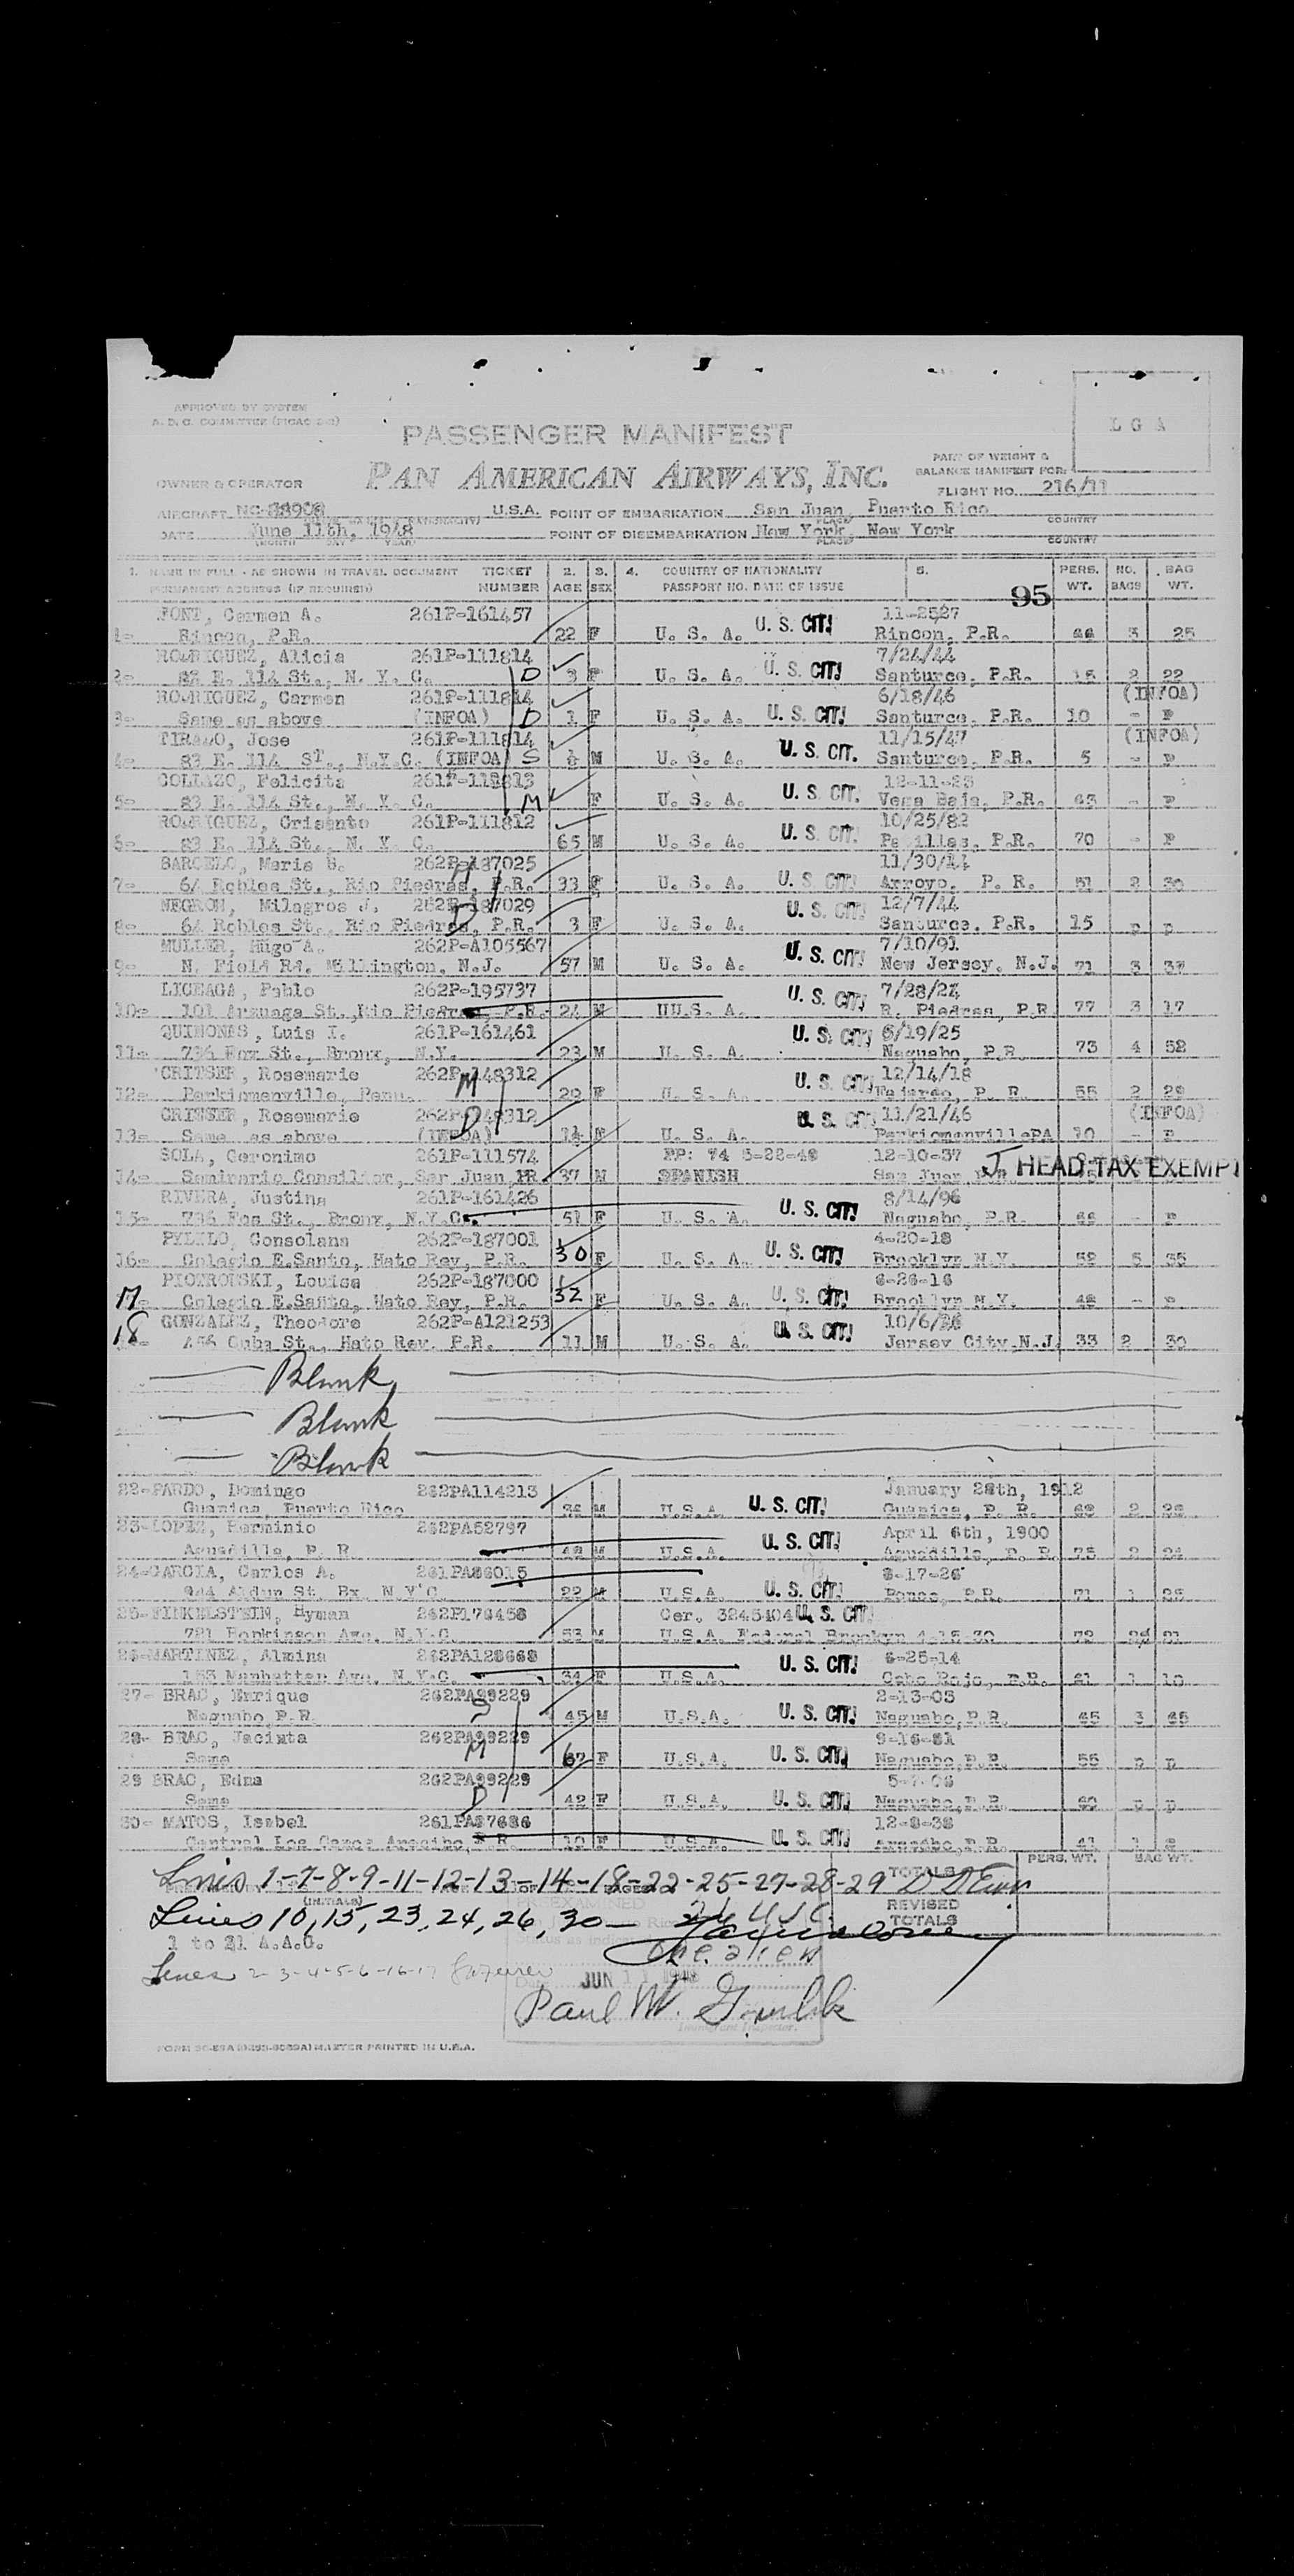 LGA
APPROVED BY SYSTEM
PASSENGER MANIFEST
PART OF WEIGHT &
BALANCE MANIFEST FOR:
PAN AMERICAN AIRWAYS, INC.
OWNER & OPERATOR
FLIGHT NO. 216/11
AIRCRAFT NC- U.S.A. POINT OF EMBARKATION San Juan, Puerto Rico
DATE June 11th, 1948 POINT OF DISEMBARKATION New York, New York
1. NAME IN FULL - AS SHOWN IN TRAVEL DOCUMENT TICKET 2. 3. 4. COUNTRY OF NATIONALITY 5. PERS. NO. BAG
PERMANENT ADDRESS (IF REQUIRED) NUMBER AGE SEX PASSPORT NO. DATE OF ISSUE 95 WT. BAGS WT.
FONT, Carmen A. 261P-161457 U. S. CIT!
1- Rincon, P.R. 22 F U. S. A. Rincon, P.R. 3 25
RODRIGUEZ, Alicia 261P-111814 7/24/44
2- 83 E. 114 St., N. Y. C. D 3 F U. S. A. U. S. CIT! Santurce, P.R. 15 2 22
RODRIGUEZ, Carmen 261P-111814 6/18/46 (INFOA)
3- Same as above (INFOA) D 1 F U. S. A. U. S. CIT! Santurce, P.R. 10 - P
TIRADO, Jose 261P-111814 11/15/47 (INFOA)
4- 83 E. 114 ST., N.Y.C. (INFOA) S ½ M U. S. A. U. S. CIT. Santurce, P.R. 5 - P
COLLAZO, Felicita
5- 83 E. 114 St., N. Y. C. M F U. S. A. U. S. CIT. Vega Baja, P.R. - P
RODRIGUEZ, Crisanto 261P-111812 10/25/82
6- 83 E. 114 St., N. Y. C. 65 M U. S. A. U. S. CIT. Patillas, P.R. 70 - P
BARCELO, Maria S. 262P-187025 11/30/14
7- 64 Robles St., Rio Piedras, P.R. 33 F U. S. A. U. S. CIT! Arroyo, P. R. 51 2 30
NEGRON, Milagros J. 262P-187029 12/7/44
8- 64 Robles St., Rio Piedras, P.R. D 3 F U. S. A. U. S. CIT! Santurce, P.R. 15 P P
MULLER, Hugo A. 262P-A105567 7/10/91
9- N. Field Rd. Millington, N.J. 57 M U. S. A. U. S. CIT! New Jersey, N.J. 71 3 37
LICEAGA, Pablo 262P-195737 7/28/24
10- 101 Arzuaga St., Rio Piedras, P.R. 24 M UU.S. A. U. S. CIT! R. Piedras, P.R. 77 3 17
QUINONES, Luis I. 261P-161461 6/19/25
11- 736 Fox St., Bronx, N.Y. 23 M U. S. A. U. S. CIT! Naguabo, P.R. 73 4 52
CRITSER, Rosemarie 262P-148312 12/14/18
12- Perkiomenville, Penn. M 29 F U. S. A. U. S. CIT! Fajardo, P. R. 55 2 29
CRITSER, Rosemarie 262P-148312 11/21/46 (INFOA)
13- Same as above (INFOA) D 1½ F U. S. A. U. S. CIT! PerkiomenvillePA 10 - P
SOLA, Geronimo 261P-111574 PP: 74 5-22-48 12-10-37
14- Seminario Conciliar, San Juan PR 37 M SPANISH San Juan HEAD TAX EXEMPT
RIVERA, Justina 261P-161426 8/14/96
15- 736 Fox St., Bronx, N.Y.C. 51 F U. S. A. U. S. CIT! Naguabo, P.R. - P
Consolana 262P-187001 4-20-18
16- Colegio E.Santo, Hato Rey, P.R. 30 F U. S. A. U. S. CIT! Brooklyn N.Y. 5 35
PIOTROUSKI, Louisa 262P-187000 6-26-16
17 Colegio E.Santo, Hato Rey, P.R. 32 F U. S. A. U. S. CIT! Brooklyn N.Y. 48 - P
GONZALEZ, Theodore 262P-A121253
18 456 Cuba St., Hato Rey, P.R. 11 M U. S. A. U. S. CIT! Jersey City,N.J. 33 2 30
Blank
Blank
Blank
22-PARDO, Domingo 262PA114213 January 28th, 1912
Guanica, Puerto Rico 36 M U.S.A. U. S. CIT! Guanica, P. R. 2
23-LOPEZ, Herminio 262PA52797 April 6th, 1900
Aguadilla, P. R. 48 M U.S.A. U. S. CIT! Aguadilla, P. R. 75 2 24
24-GARCIA, Carlos A. 261PA86015 -17-26
944 Aldus St. Bx. N.Y.C. 22 M U.S.A. U. S. CIT! Ponce, P.R. 71 1 25
25-FINKELSTEIN, Hyman 262P176458 Cer. 3245404 U. S. CIT!
781 Hopkinson Ave. N.Y.C. 53 M U.S.A. Federal Brooklyn 4-15-30 72 21
26-MARTINEZ, Almina 262PA128668 6-25-14
153 Manhattan Ave. N.Y.C. 34 F U.S.A. U. S. CIT! Cabo Rojo, P.R. 61 1 10
27- BRAC, Enrique 262PA99229 2-13-03
Naguabo P.R. S 45 M U.S.A. U. S. CIT! Naguabo,P.R. 65 3 65
28- BRAC, Jacinta 262PA99229 9-16-81
Same M 67 F U.S.A. U. S. CIT! Naguabo,P.R. 55 P P
29 BRAC, Edna 262PA99229
Same D 42 F U.S.A. U. S. CIT! Naguabo,P.R. 60 P P
30- MATOS, Isabel 261PA87686 12-8-38
Central Los Canos Arecibo, P.R. 10 F U.S.A. U. S. CIT! Arecibo,P.R. 41 1
TOTALS PERS. WT. BAG WT.
Lines 1-7-8-9-11-12-13-14-18-22-25-27-28-29
REVISED
TOTALS
PREEXAMINED
Lines 10, 15, 23, 24, 26, 30 - 26 USC
1 to 21 A.A.G.
One alien
Lines 2-3-4-5-6-16-17
JUN 11 1948
Paul W.
Immigrant Inspector.
MASTER PRINTED IN U.S.A.